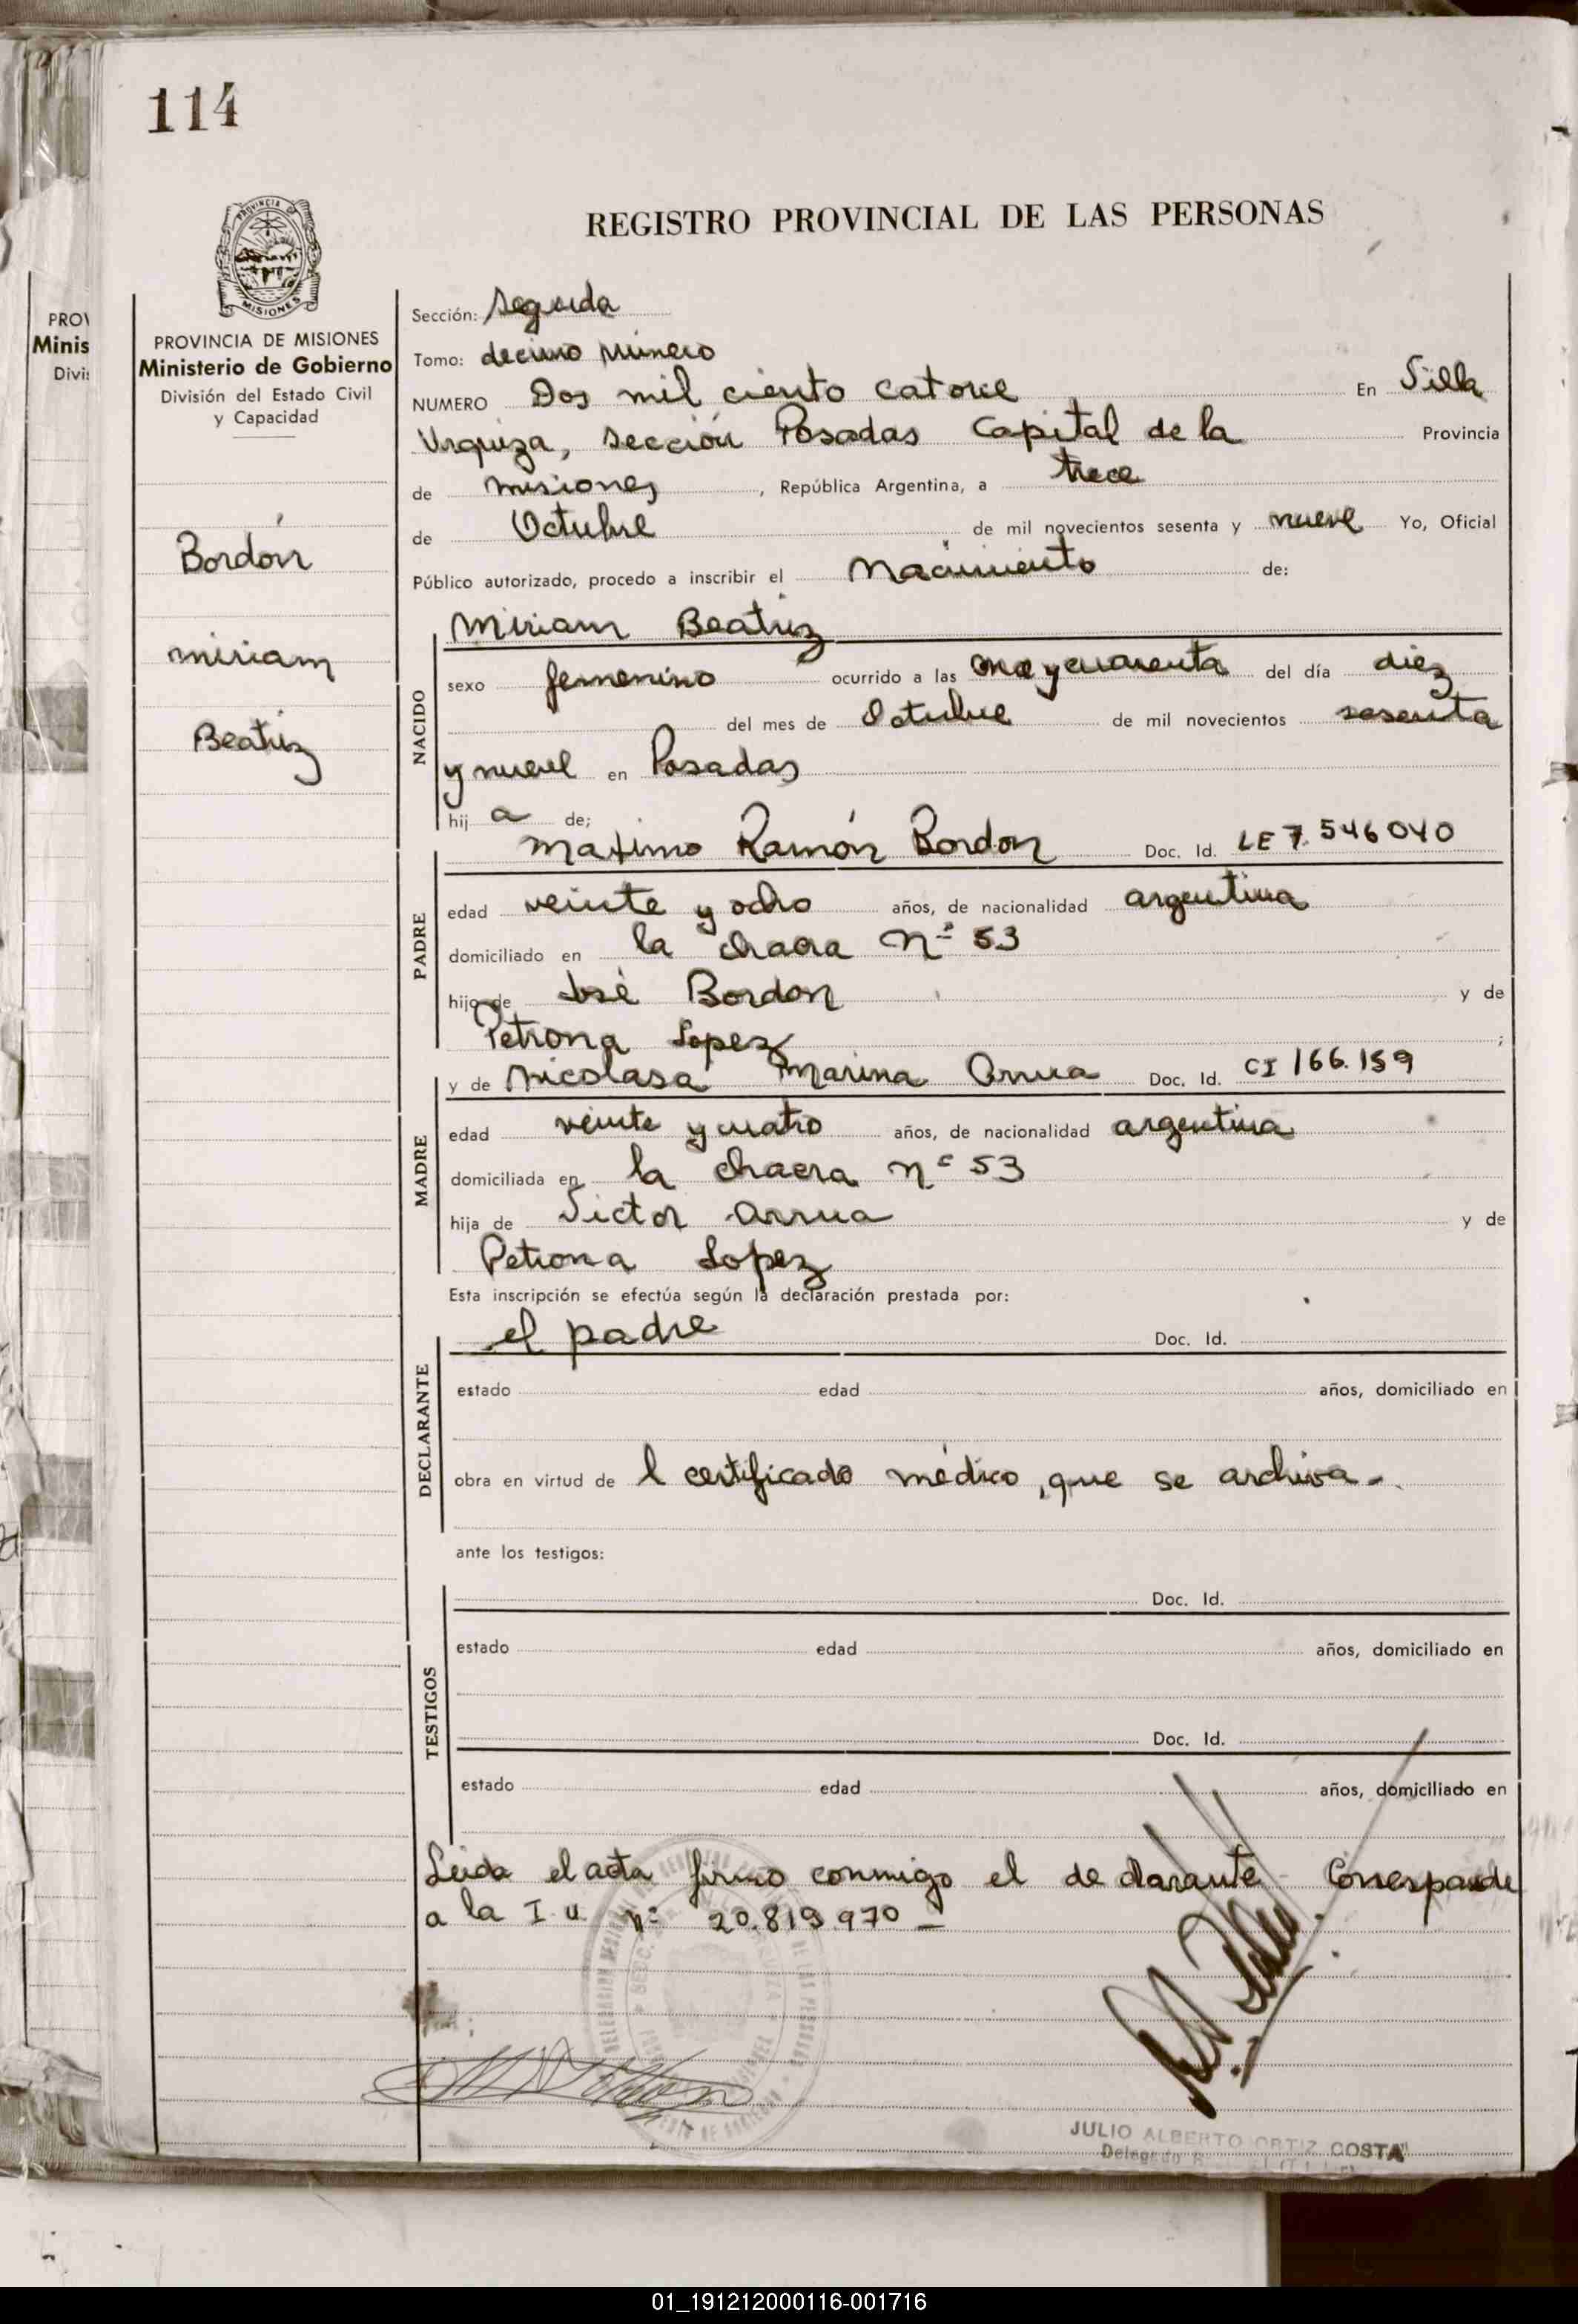 114
PROVINCIA DE
MISIONES
REGISTRO PROVINCIAL DE LAS PERSONAS
PROVINCIA DE MISIONES
Ministerio de Gobierno
División del Estado Civil
y Capacidad
Bordón
Miriam
Beatriz
Sección: Segunda
Tomo: decimo Número
NUMERO Dos mil ciento catorce En Villa
Urquiza, Sección Posadas Capital de la Provincia
de Misiones, República Argentina, a trece
de Octubre de mil novecientos sesenta y nueve Yo, Oficial
Público autorizado, procedo a inscribir el Nacimiento de:
NACIDO
Miriam Beatriz
sexo femenino ocurrido a las once y cuarenta del día diez
del mes de Octubre de mil novecientos sesenta
y nueve en Posadas
hij a de;
PADRE
Maximo Ramón Bordon Doc. Id. LE 7.546040
edad veinte y ocho años, de nacionalidad argentina
domiciliado en la chacra Nº 53
hijo de José Bordon y de
Petrona Lopez ;
MADRE
y de Nicolasa Marina Arrua Doc. Id. CI 166.159
edad veinte y cuatro años, de nacionalidad argentina
domiciliada en la chacra nº 53
hija de Victor Arrua y de
Petrona Lopez
Esta inscripción se efectúa según la declaración prestada por:
DECLARANTE
el padre Doc. Id.
estado edad años, domiciliado en
obra en virtud de l certificado médico, que se archiva.-
ante los testigos:
TESTIGOS
Doc. Id.
estado edad años, domiciliado en
Doc. Id.
estado edad años, domiciliado en
Leida el acta firmo conmigo el declarante - Corresponde
a la I.U. nº 20.819970 -
JULIO ALBERTO ORTIZ COSTA
Delegado
PROV
Minis
Divi
01_191212000116-001716